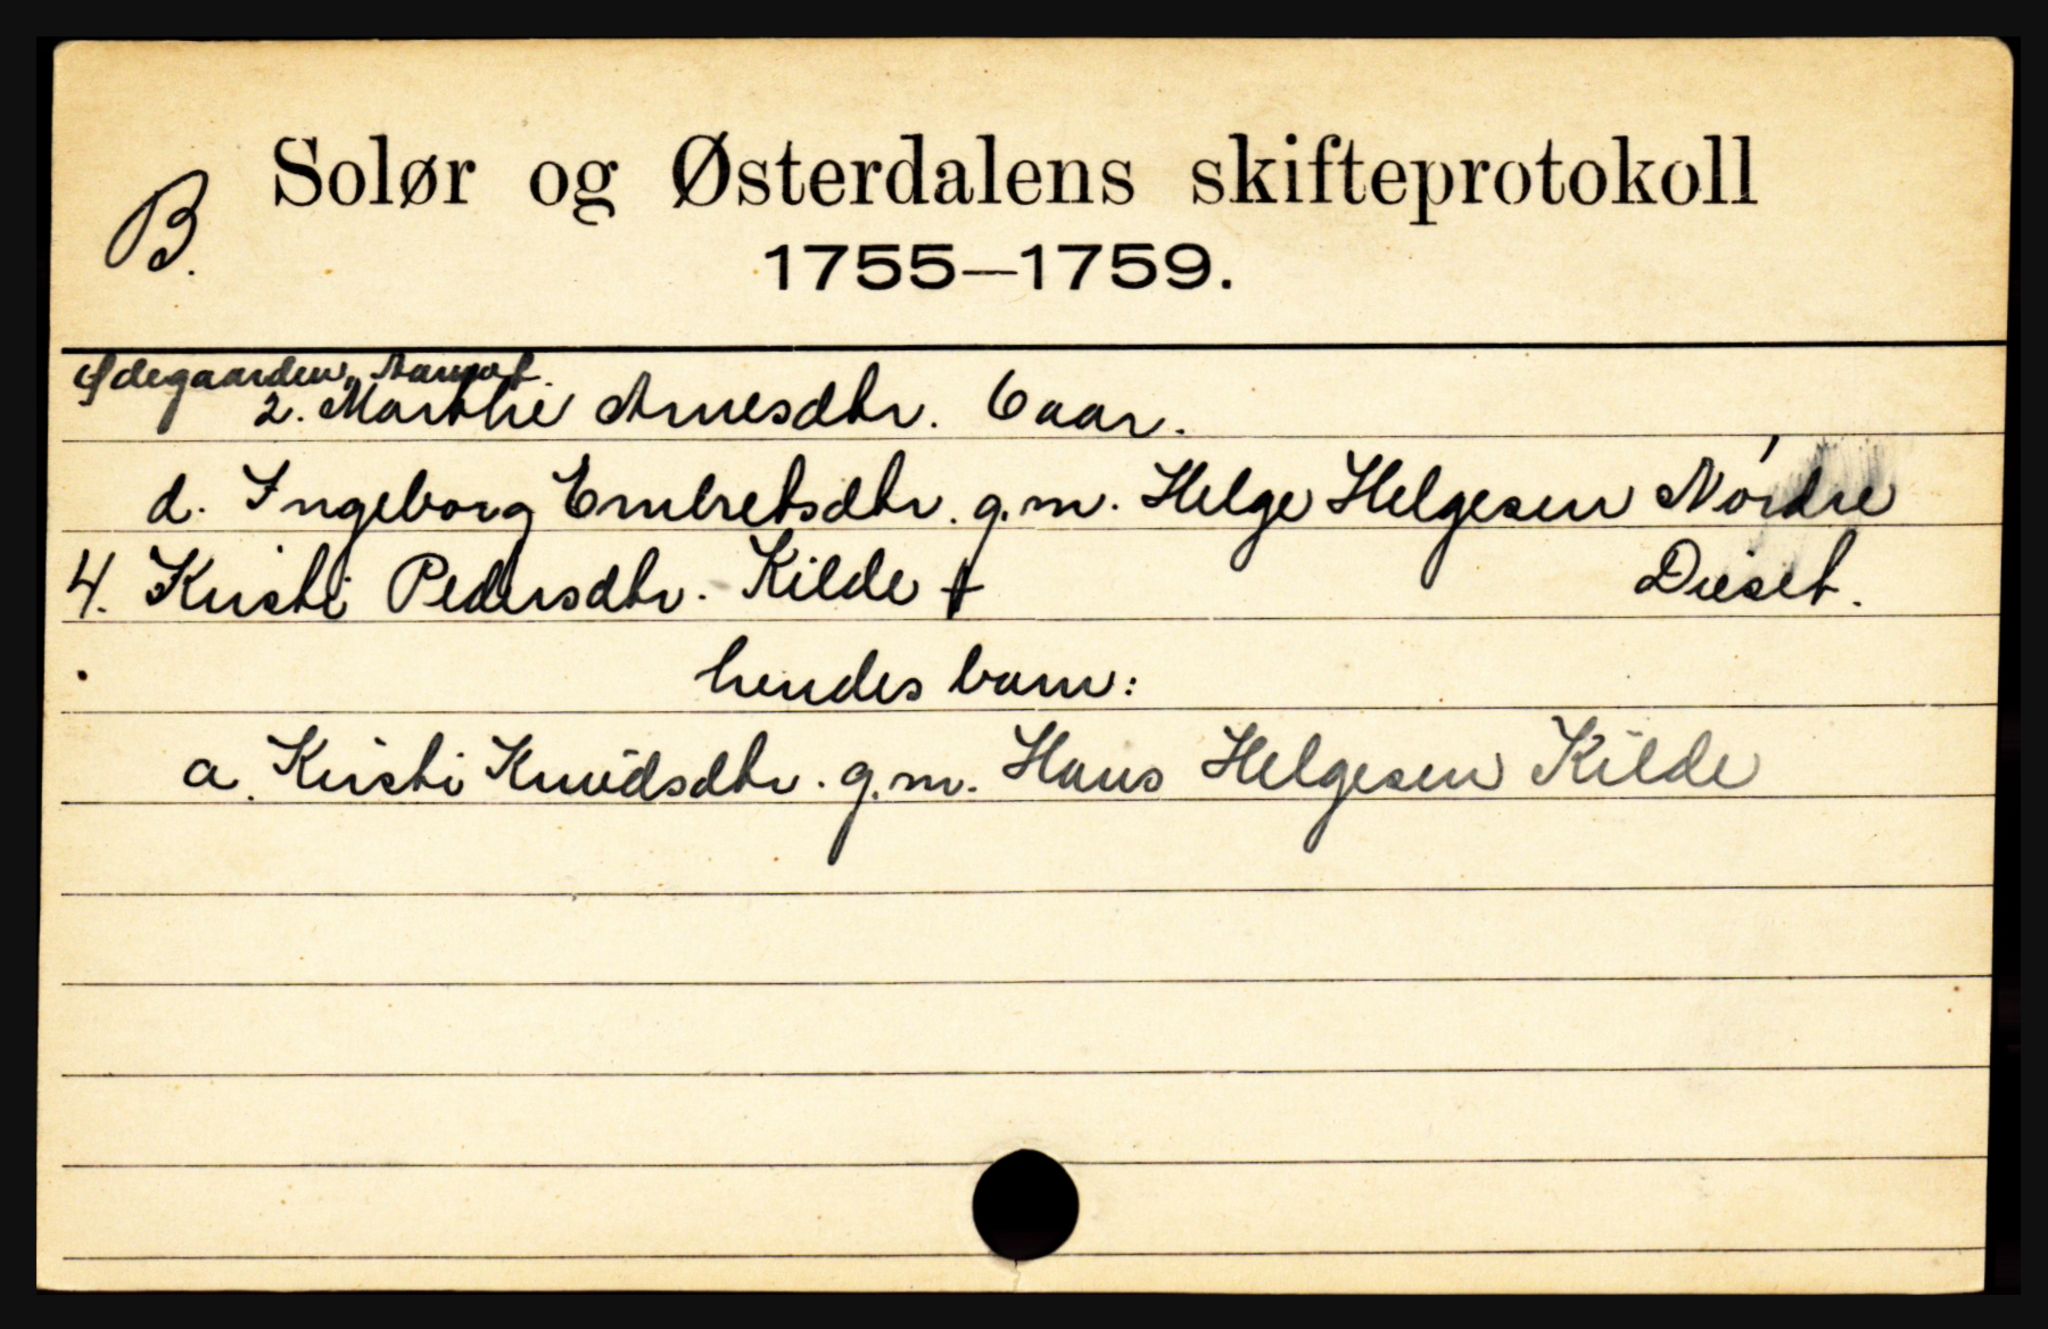 B.
Solør og Østerdalens skifteprotokoll
1755–1759.
Ødegaarden, Aamot.
2. Marthe Arnesdtr. 6 aar.
d. Ingeborg Embretsdtr. g.m. Helge Helgesen Nordre
Dieset.
4. Kirsti Pedersdtr. Kilde †
hendes barn:
a. Kirsti Knudsdtr. g.m. Hans Helgesen Kilde